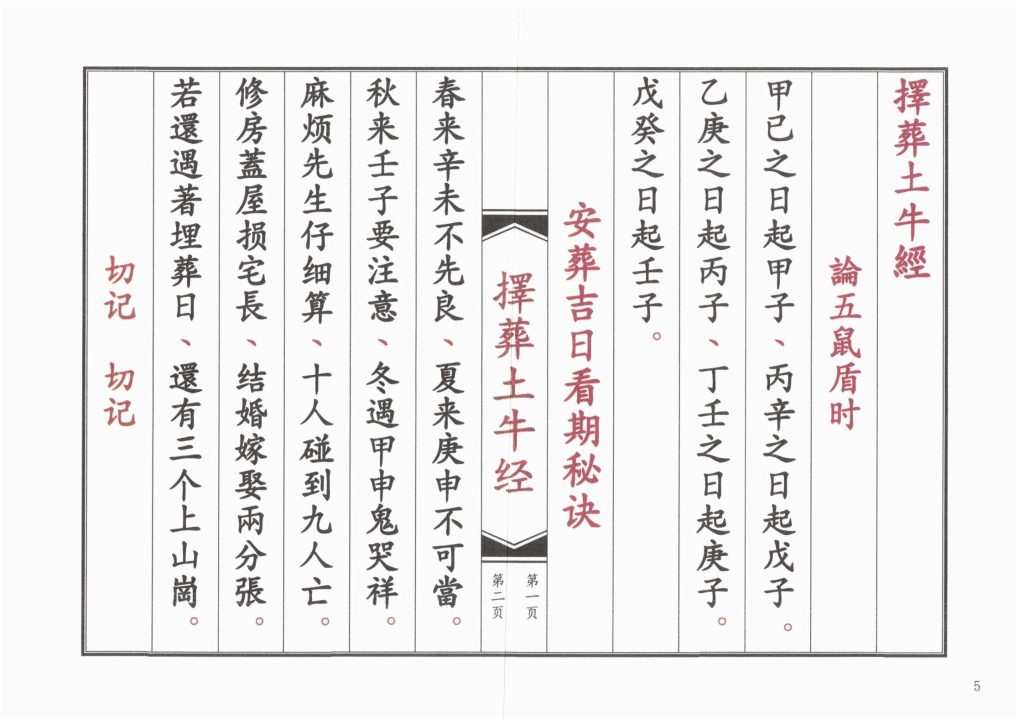 擇葬土牛經
論五鼠盾时
甲已之日起甲子、丙辛之日起戊子。
乙庚之日起丙子、丁壬之日起庚子。
戊癸之日起壬子。
安葬吉日看期秘诀
擇葬土牛经
第一页
第二页
春来辛未不先良、夏来庚申不可當。
秋来壬子要注意、冬遇甲申鬼哭祥。
麻烦先生仔细算、十人碰到九人亡。
修房蓋屋损宅長、结婚嫁娶兩分張。
若還遇著埋葬日、還有三个上山崗。
切记 切记
5